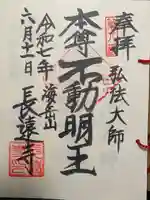 奉拝
弘法大師
本尊不動明王
令和七年
六月十一日
長遠寺